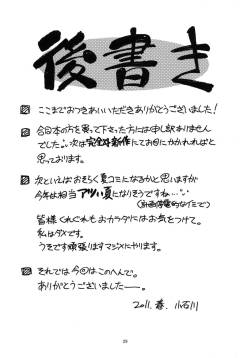 後書き
ここまでおつきあいいただきありがとうございました！
今回本の方を買って下さった方には申し訳ありません
でした。次は完全新作にてお目にかかれればと
思っております。
次といえばおそらく夏コミになるかと思いますが
今年は相当アツい夏になりそうですね…
皆様くれぐれもおカラダにはお気をつけて。
私はダメです。
うそです頑張りますマジメにやります。
それでは今回はこのへんで。
ありがとうございましたー。
2011. 春. 小石川
29